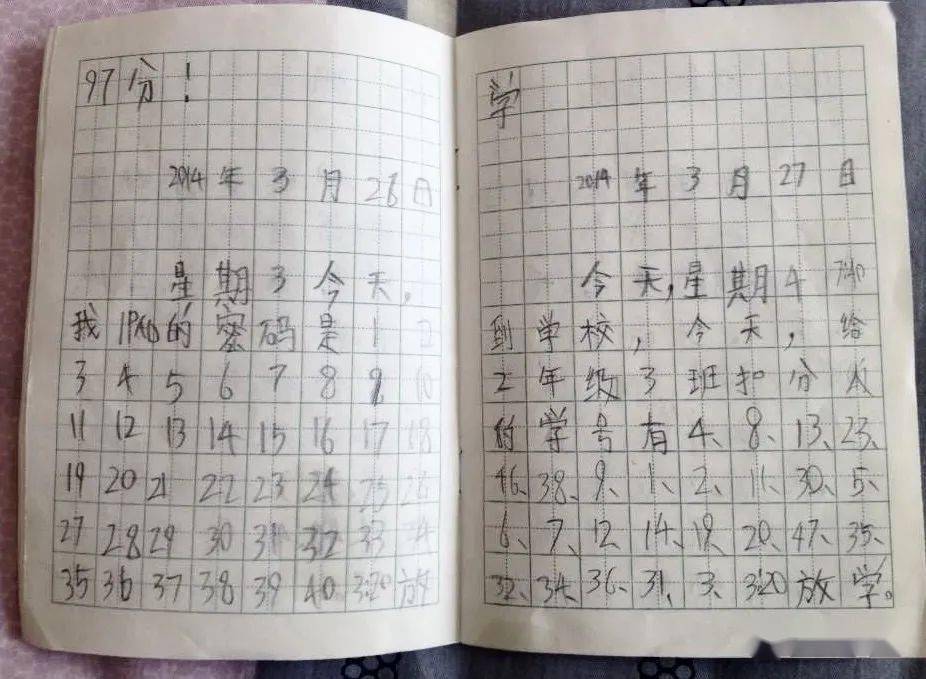 97分！
2014年3月26日
星期3今天，
我IPAD的密码是1 2
3 4 5 6 7 8 9 10
11 12 13 14 15 16 17 18
19 20 21 22 23 24 25 26
27 28 29 30 31 32 33 34
35 36 37 38 39 40 3:20放
学
2014年3月27日
今天，星期4 7:40
到学校，今天，给
2年级3班扣分人
的学号有4、8、13、23、
46、38、9、1、2、11、30、5、
6、7、12、14、19、20、47、35、
32、34、36、31、3、3:20放学。